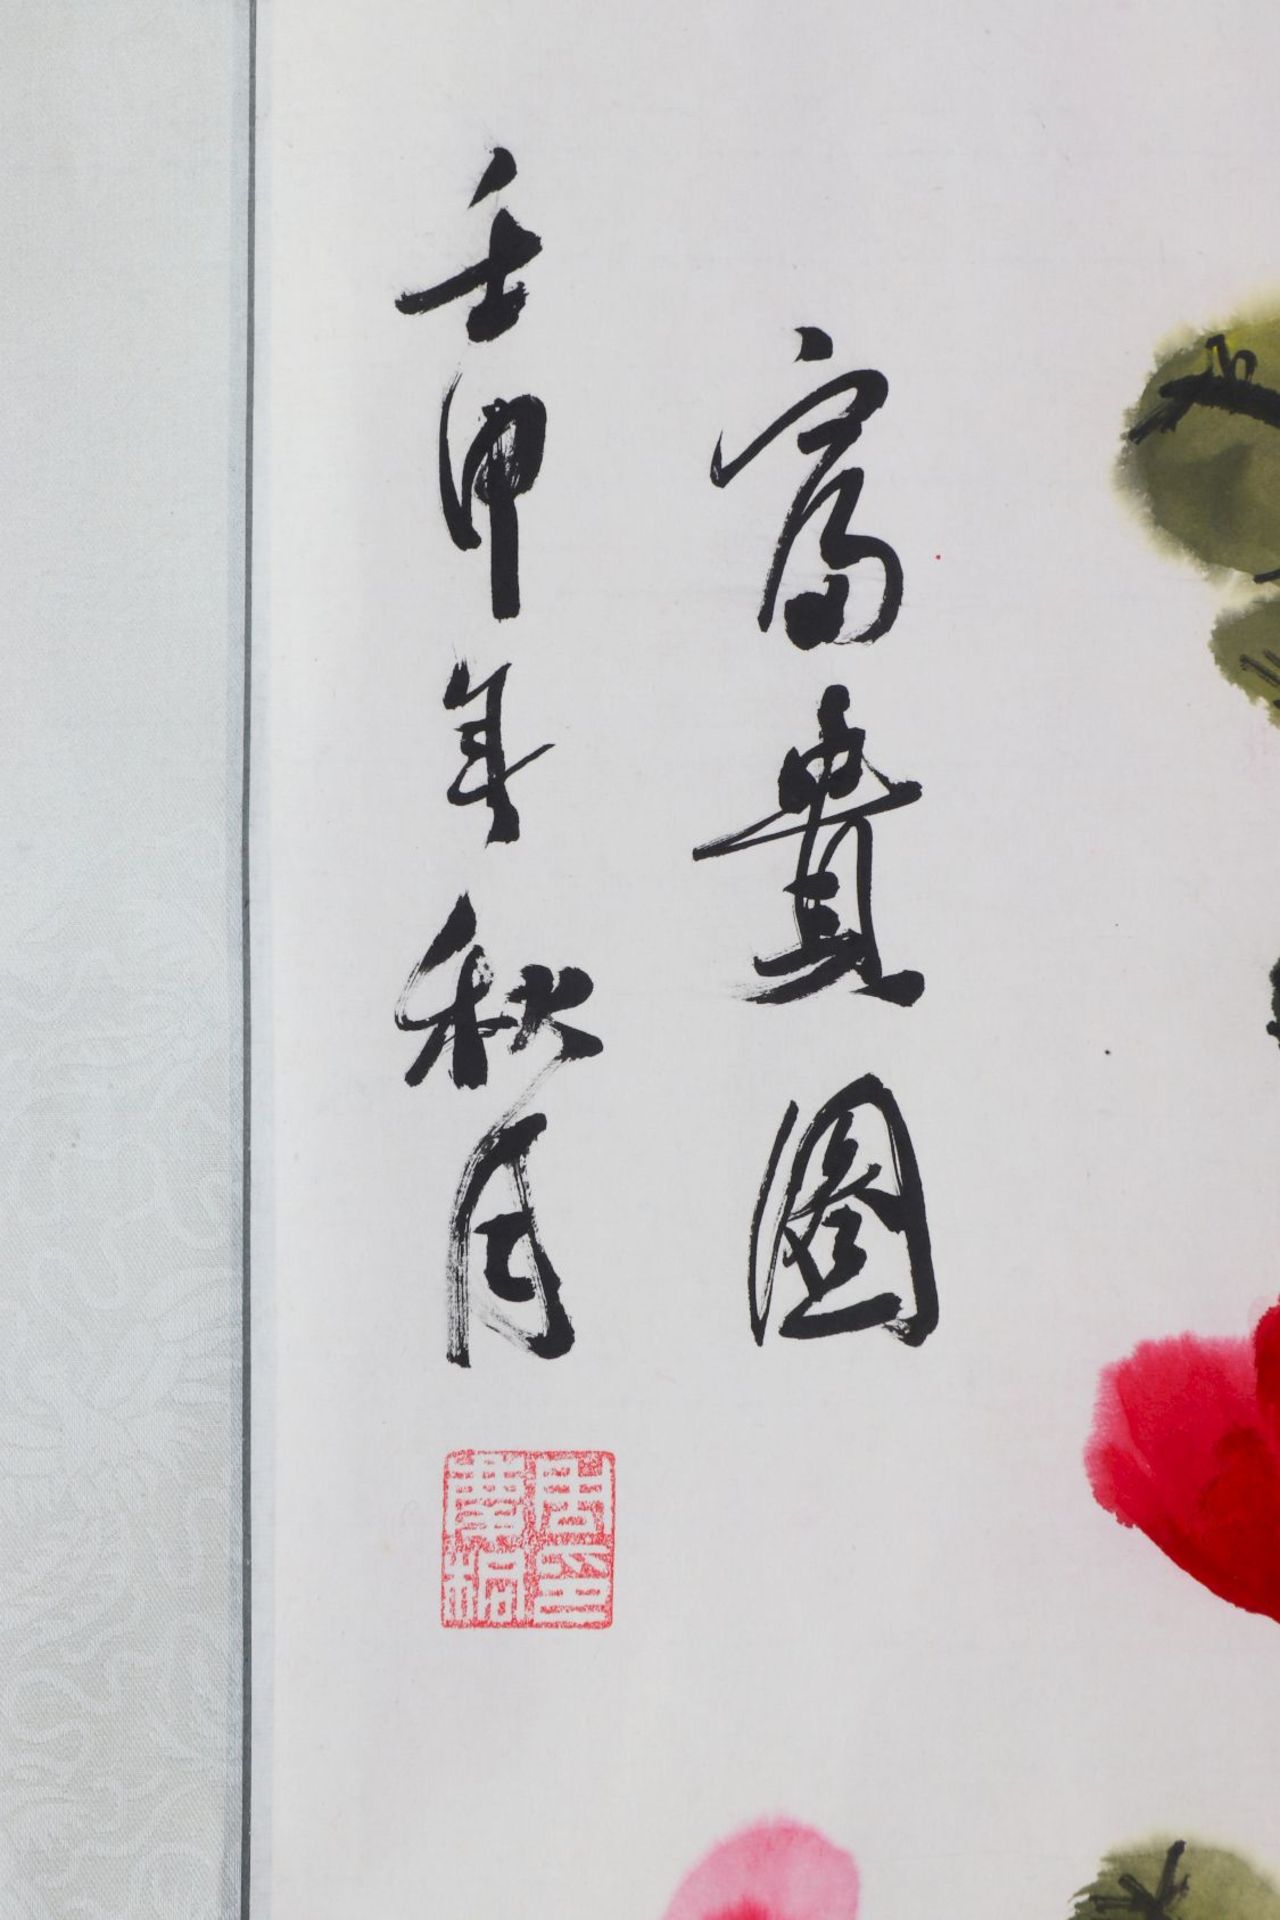 富貴圖
壬申年秋月
周印